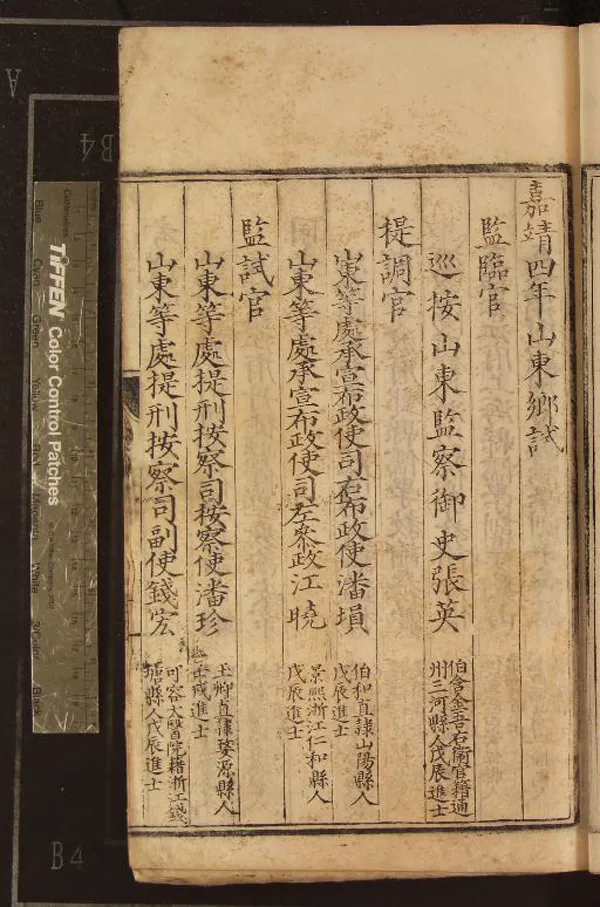 嘉靖四年山東鄉試
監臨官
巡按山東監察御史張英
伯含金吾右衛官籍通
州三河縣人戊辰進士
提調官
山東等處承宣布政使司右布政使潘塤
伯和直隸山陽縣人
戊辰進士
山東等處承宣布政使司左參政江曉
景熙浙江仁和縣人
戊辰進士
監試官
山東等處提刑按察司按察使潘珍
玉卿直隸婺源縣人
壬戌進士
山東等處提刑按察司副使錢宏
可容太醫院籍浙江錢
塘縣人戊辰進士
TIFFEN Color Control Patches
Blue
Cyan
Green
Yellow
Red
Magenta
White
3/Color
Black
Centimetres
A
B4
B4